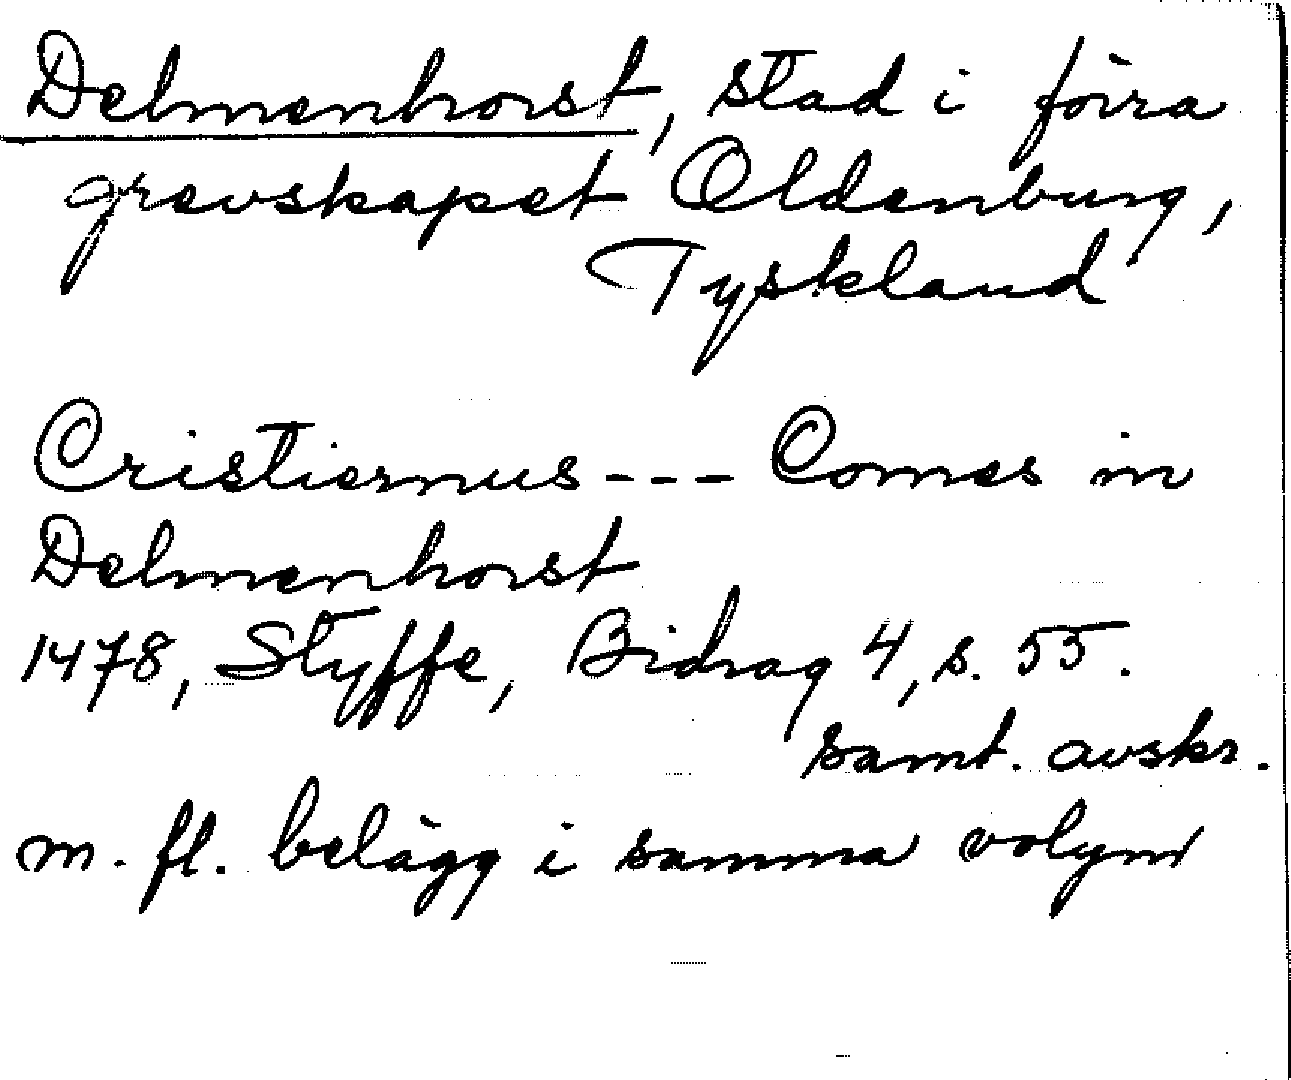 Delmenhorst, stad i förra
grevskapet Oldenburg,
Tyskland
Cristiernus --- Comes in
Delmenhorst
1478, Styffe, Bidrag 4, s. 55.
samt. avskr.
m. fl. belägg i samma volym